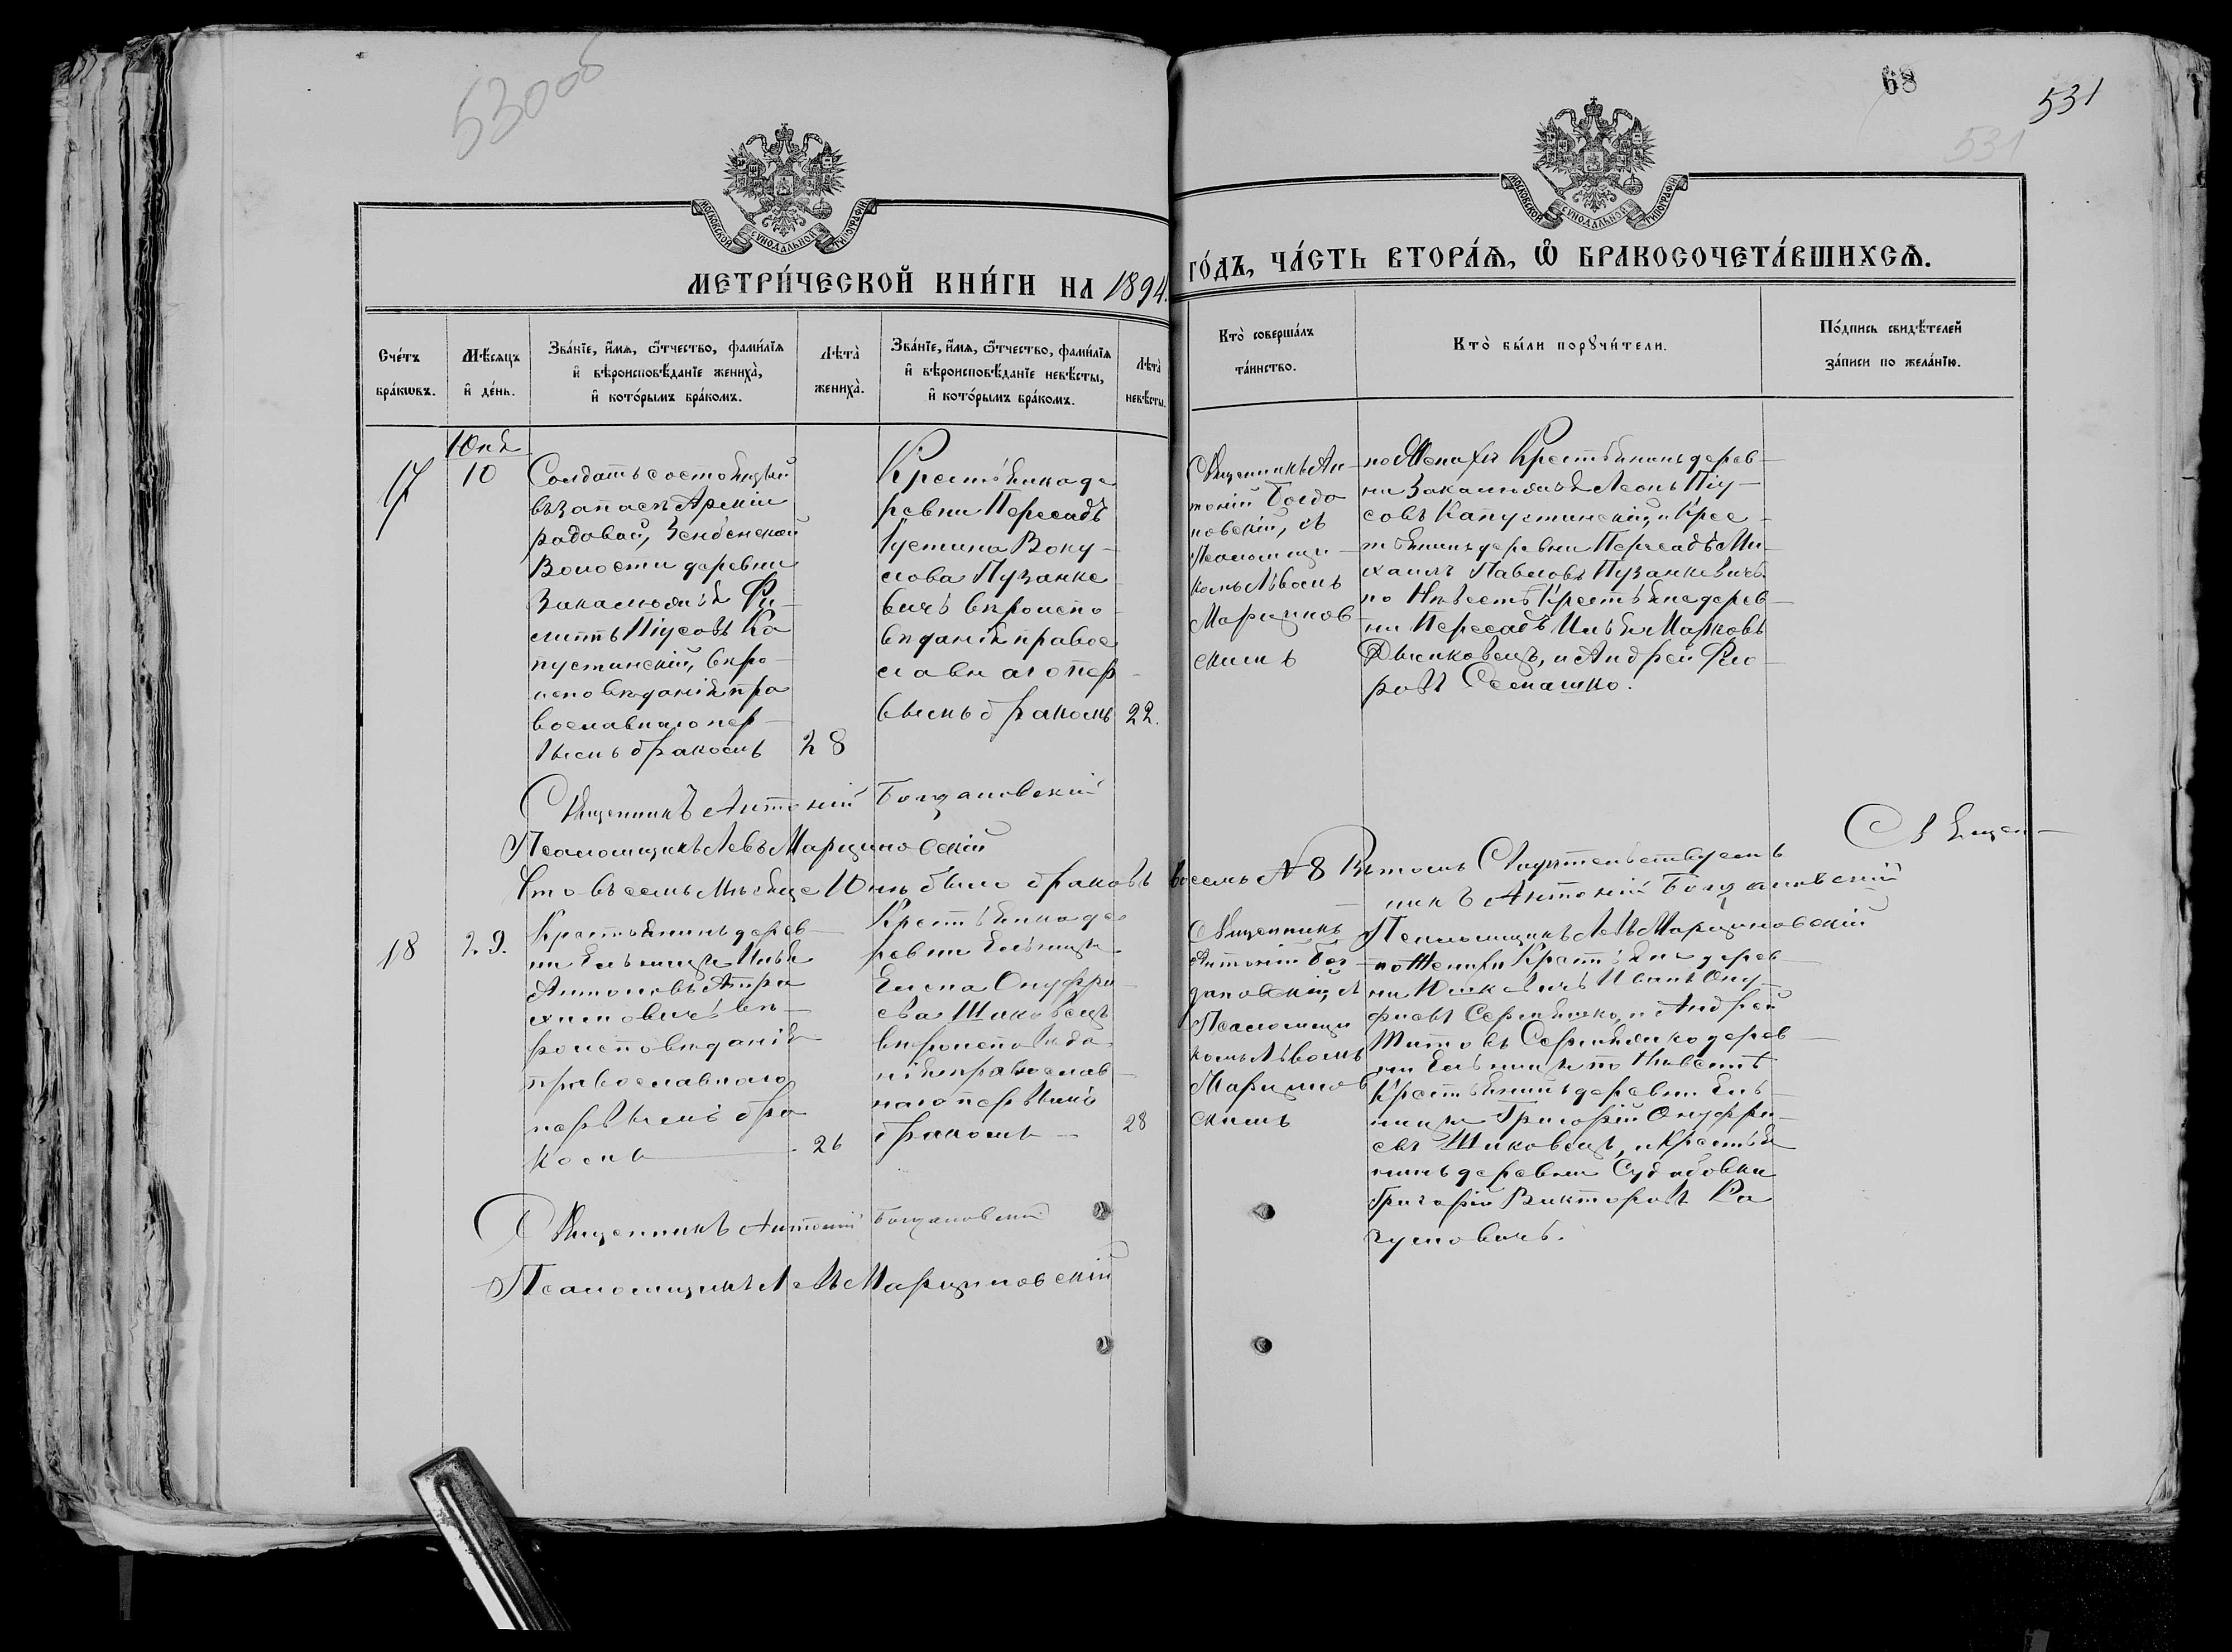 530об
68
531
531
МОСКОВСКОЙ СѴНОДАЛЬНОЙ ТИПОГРАФІИ
МОСКОВСКОЙ СѴНОДАЛЬНОЙ ТИПОГРАФІИ
МЕТРИ́ЧЕСКОЙ КНИ́ГИ НА 1894.
ГО́ДЪ, ЧА́СТЬ ВТОРА́Ѧ, Ѡ҆ БРАКОСОЧЕТА́ВШИХСѦ.
Сче́тъ
бра́кѡвъ.
Мѣ́сѧцъ
и҆ де́нь.
Зва́нїе, и҆́мѧ, ѻ҆́тчество, фами́лїѧ
и҆ вѣроисповѣ́данїе жениха̀,
и҆ кото́рымъ бра́комъ.
Лѣта̀
жениха̀.
Зва́нїе, и҆́мѧ, ѻ҆́тчество, фами́лїѧ
и҆ вѣроисповѣ́данїе невѣ́сты,
и҆ кото́рымъ бра́комъ.
Лѣта̀
невѣ́сты.
Кто̀ соверша́лъ
та́инство.
Кто̀ бы́ли порꙋчи́тели.
По́дпись свидѣ́телей
за́писи по жела́нїю.
17
Юня
10
Солдатъ состоящій
въ запасѣ Арміи
радовой,
Волости деревни
Фи-
липпъ Піусовъ Ка
пустинскій, вѣро-
исповѣданія пра
вославнаго пер-
вымъ бракомъ
28
Крестьянка де
ревни Пересадъ
Іустина Воку-
лова Пузанке
вичъ вѣроиспо
вѣданія правос
лавнаго пер-
вымъ бракомъ
22.
Священникъ Ан-
тоній Богда
новскій, съ
Псаломщи-
комъ Львомъ
Марцинов-
скимъ
по Женихѣ Крестьянинъ дерев-
ни Леонъ Піу-
совъ Капустинскій, и Крес-
тьянинъ деревни Пересадъ Ми-
хаилъ Павловъ Пузанкевичъ.
по Невѣстѣ Крестьяне дерев-
ни Пересадъ Илья Марковъ
и Андрей Фло-
ровъ Семашко.
Священникъ Антоній Богдановскій
Псаломщикъ Левъ Марциновскій
Что въ семъ мѣсяце Юнѣ было браковъ
восемь № 8 Въ томъ Свидѣтельствуемъ
Священ-
никъ Антоній Богдановскій
Псаломщикъ Левъ Марциновскій
18
29.
Крестьянинъ дерев-
ни Ельницы Илья
Антоновъ
вѣ-
роисповѣданія
православнаго
первымъ бра
комъ
26
Крестьянка де
ревни Ельницы
Елена Онуфрі-
ева Шаковецъ
вѣроисповѣда
нія православ-
наго первымъ
бракомъ
28
Священникъ
Антоній Бог-
дановскій, съ
Псаломщи
комъ Львомъ
Марцинов
скимъ
по Женихѣ Крестьяне дерев-
ни Иванъ Ону-
фріевъ и Андрей
Титовъ дерев-
ни Ельницы по Невѣстѣ
Крестьянинъ деревни Ель-
ницы Григорій Онуфрі-
евъ Шаковецъ, и Крестья
нинъ деревни Судобовки
Григорій Викторовъ Ра
Священникъ Антоній Богдановскій
Псаломщикъ Левъ Марциновскій